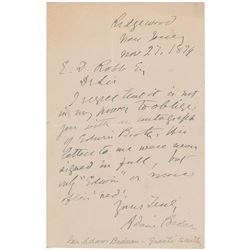 Ridgewood
New Jersey
Nov. 27, 1874
E. D. Robb Esq
Dr Sir
I regret that it is not
in my power to oblige
you with an autograph
of Edwin Booth. His
letters to me were never
signed in full, but
only "Edwin" or more
often "Ned".
Yours Truly,
Adam Badeau
Gen Adam Badeau - Grant's